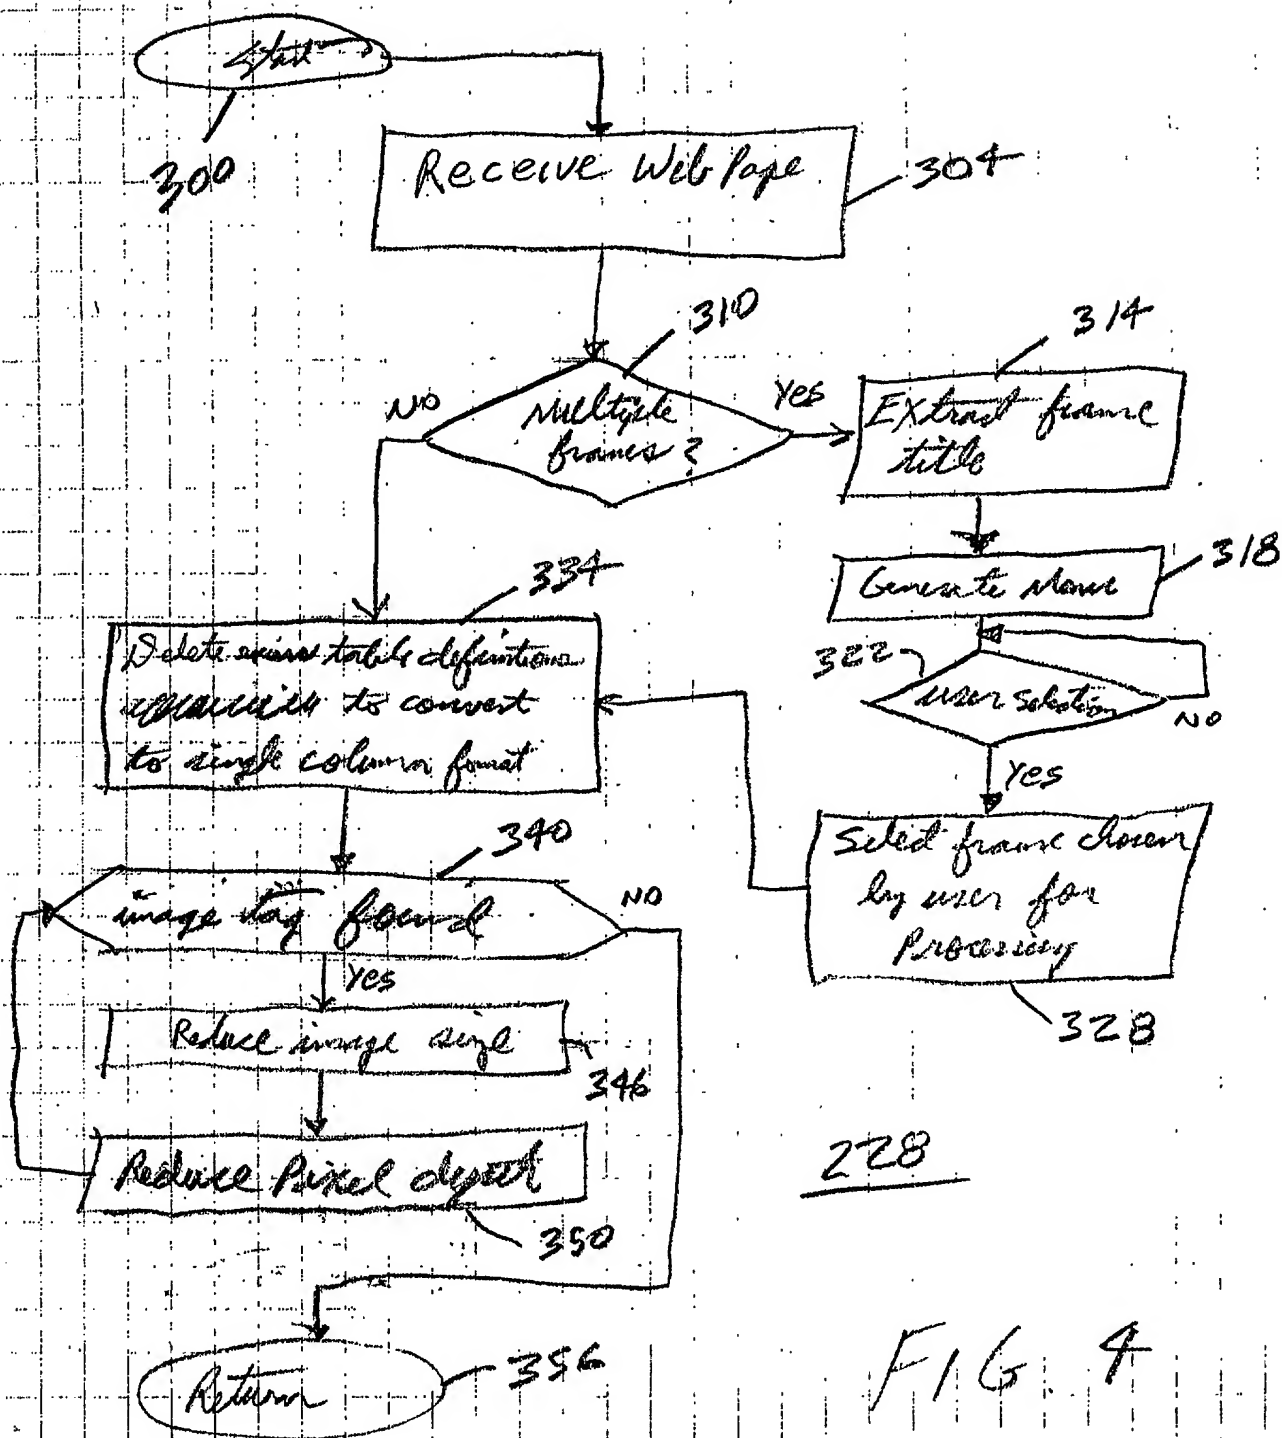 Start
300
Receive Web Page
304
310
314
NO
Multiple
frames?
Yes
Extract frame
title
334
318
Generate Menu
Delete table definitions
to convert
to single column format
322
user selection
NO
Yes
340
Select frame chosen
by user for
Processing
image tag found
NO
Yes
328
Reduce image size
346
Reduce Pixel depth
350
228
Return
356
FIG. 4